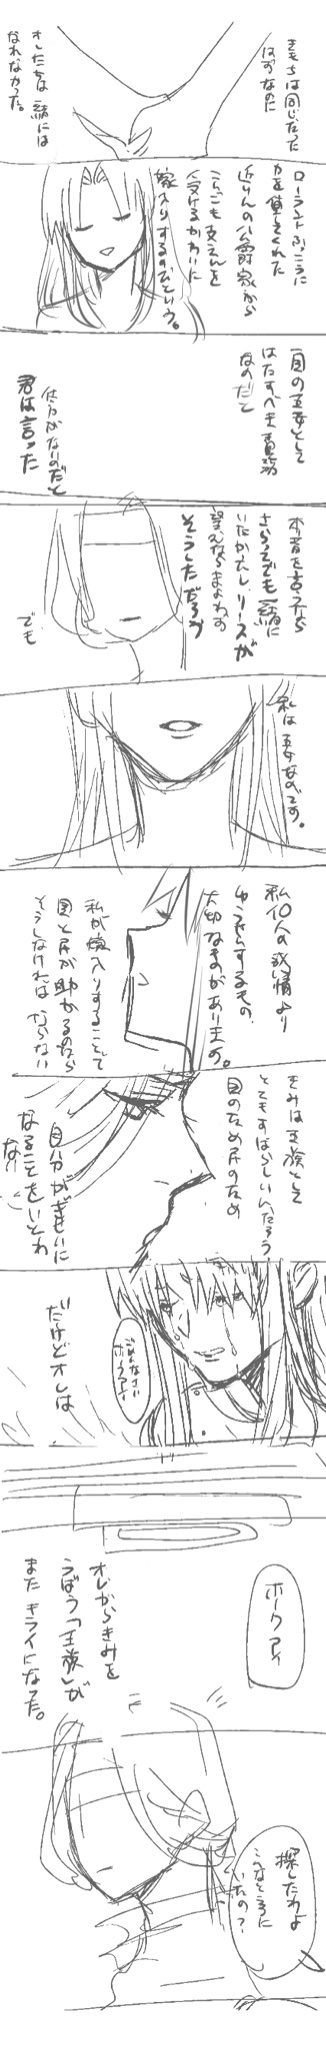 きもちは同じだった
はずなのに
オレたちは一緒には
なれなかった。
ローラントふっこうに
力を貸してくれた
近りんの公爵家から
こんごも支えんを
受けるかわりに
嫁入りするのだという。
一国の王女として
はたすべき責務
なのだと
仕方がないのだと
君は言った
本音を言うなら
さらってでも一緒に
いたかったし、リースが
望んならまよわず
そうしただろう
でも
私は王女なのです。
私個人の感情より
ゆうせんするもの、
大切なものがあります。
私が嫁入りすることで
国と民が助かるのなら
そうしなければならない
きみは王族として
とてもすばらしいんだろう
国のため民のため
自分がぎせいに
なることをいとわ
ない
ごめんなさい
ホークアイ
だけどオレは
ホークアイ
オレからきみを
うばう「王族」が
またキライになった。
探したわよ
こんなところに
いたの?